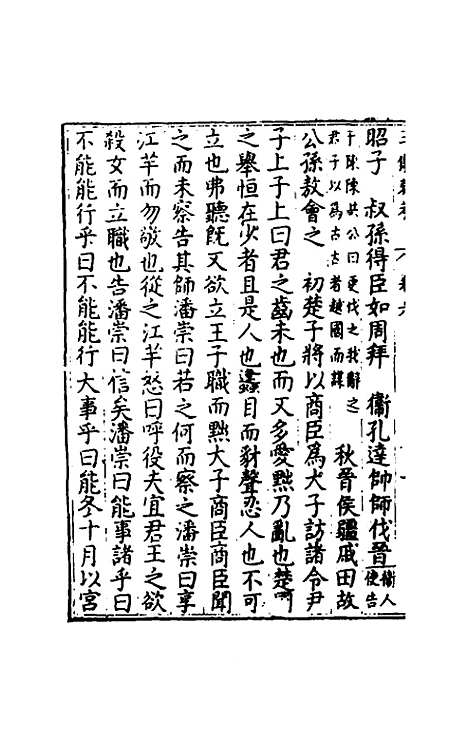 昭子　叔孫得臣如周拜　衛孔達帥師伐晉衛人使告
于陳陳共公曰更伐之我辭之君子以爲古古者越國而謀　秋晉侯疆戚田故
公孫敖會之　初楚子將以商臣爲大子訪諸令尹
子上子上曰君之齒未也而又多愛黜乃亂也楚國
之舉恒在少者且是人也蠭目而豺聲忍人也不可
立也弗聽既又欲立王子職而黜大子商臣商臣聞
之而未察告其師潘崇曰若之何而察之潘崇曰享
江芊而勿敬也從之江芊怒曰呼役夫宜君王之欲
殺女而立職也告潘崇曰信矣潘崇曰能事諸乎曰
不能能行乎曰不能能行大事乎曰能冬十月以宮